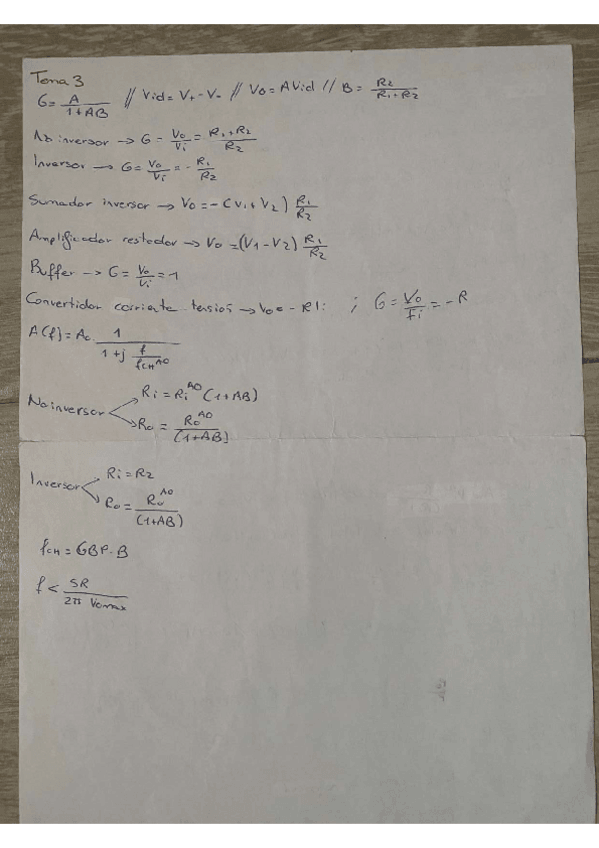 Tema 3
G = A / (1+AB) // Vid = V+ - V- // Vo = AVid // B = R2 / (R1+R2)
No inversor → G = Vo/Vi = (R1+R2)/R2
Inversor → G = Vo/Vi = - R1/R2
Sumador inversor → Vo = -(V1+V2) R1/R2
Amplificador restador → Vo = (V1-V2) R1/R2
Buffer → G = Vo/Vi = 1
Convertidor corriente tensión → Vo = - RIi ; G = Vo/Ii = -R
A(f) = Ao 1 / (1+j f/fCH^AO)
No inversor
Ri = Ri^AO (1+AB)
Ro = Ro^AO / (1+AB)
Inversor
Ri = R2
Ro = Ro^AO / (1+AB)
fCH = GBP·B
f < SR / (2π Vomax)